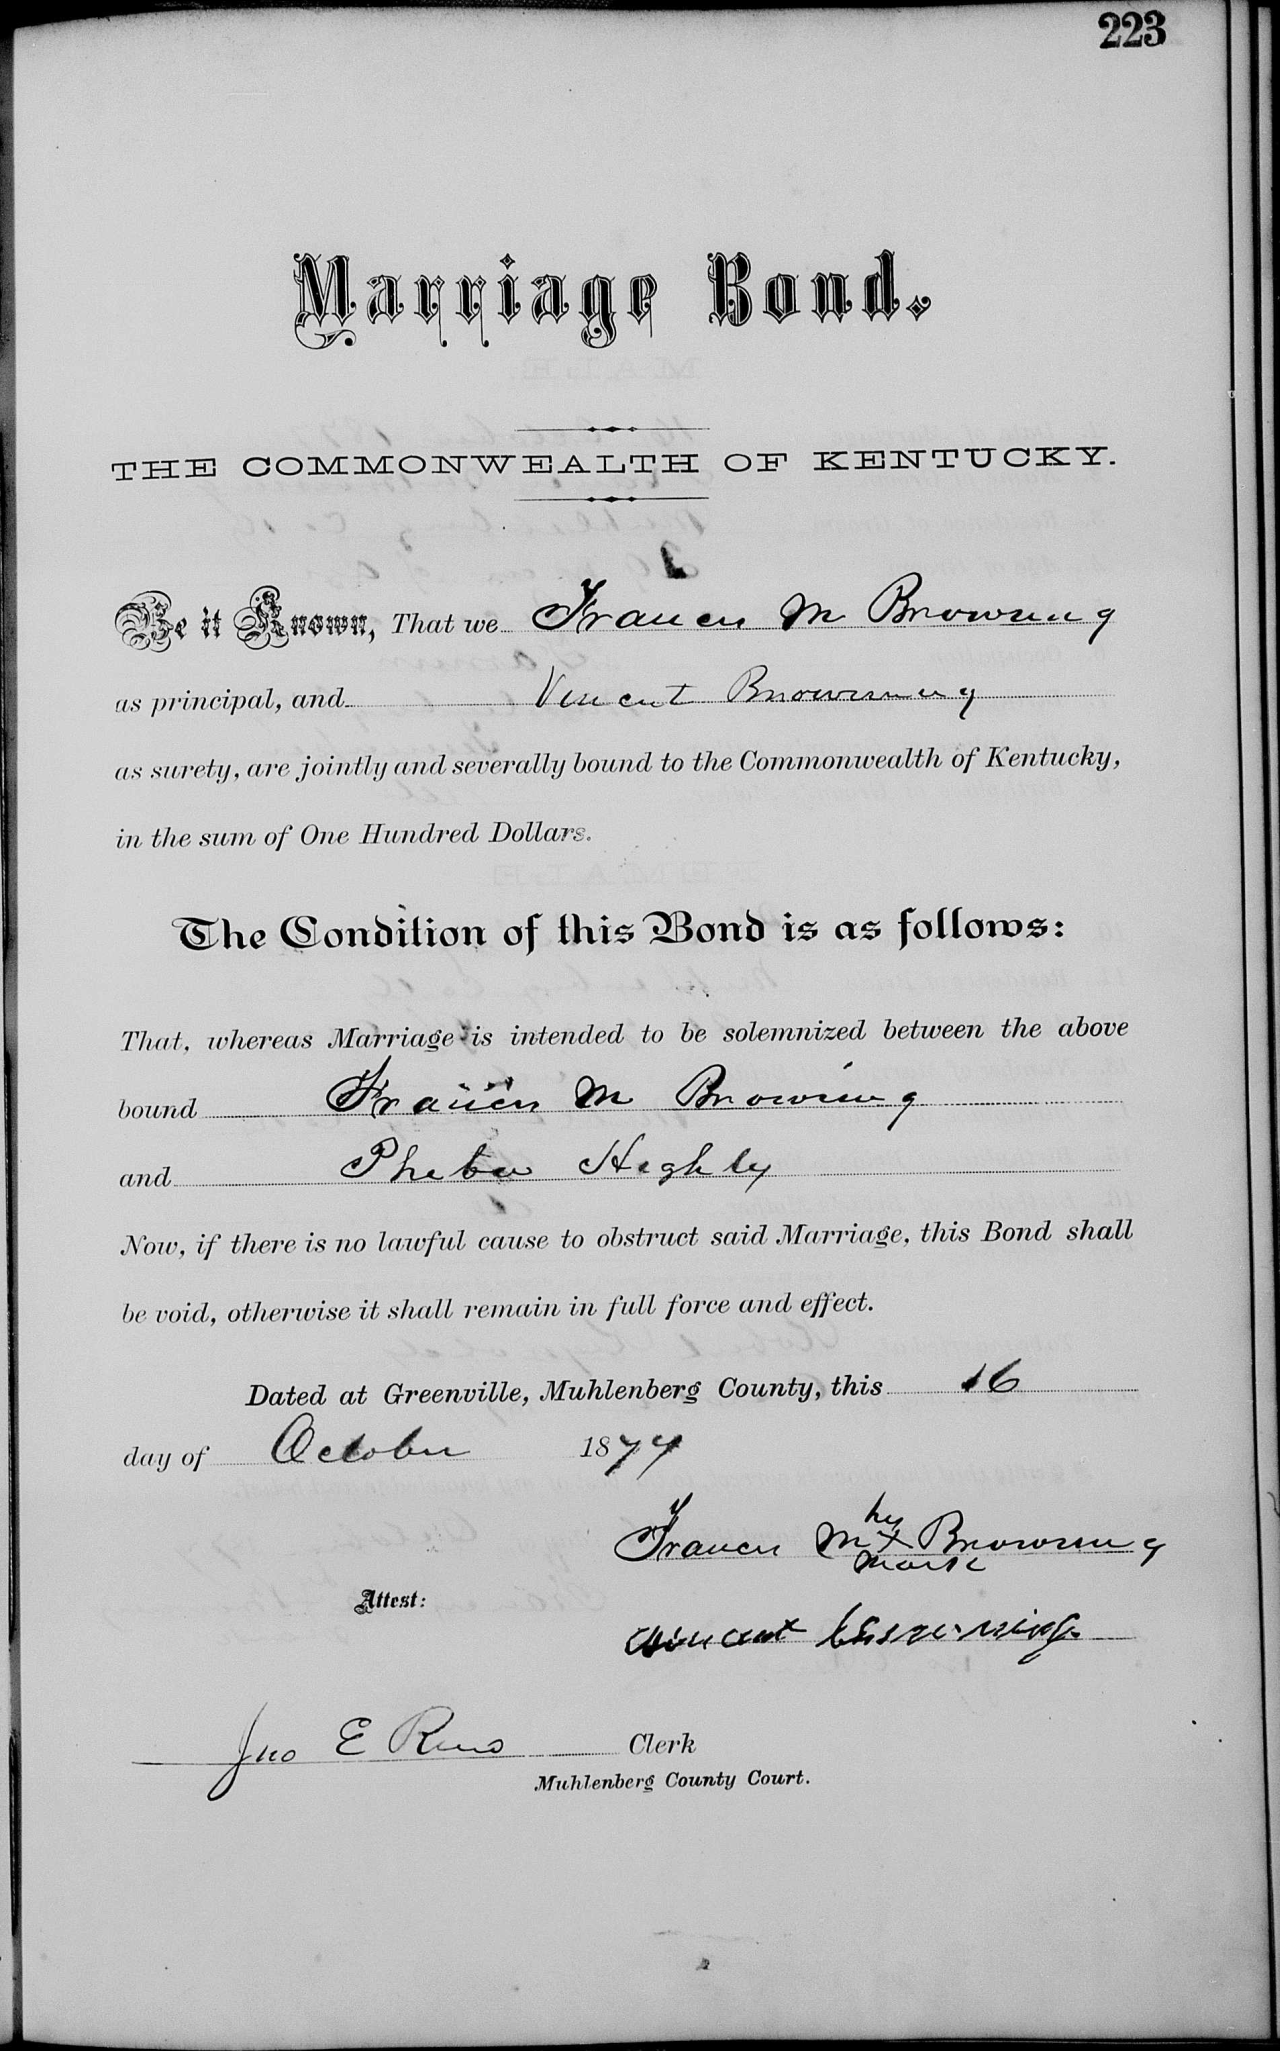 223
Marriage Bond.
THE COMMONWEALTH OF KENTUCKY.
Be it Known, That we Francis M Browning
as principal, and Vincent Browning
as surety, are jointly and severally bound to the Commonwealth of Kentucky,
in the sum of One Hundred Dollars.
The Condition of this Bond is as follows:
That, whereas Marriage is intended to be solemnized between the above
bound Francis M Browning
and Phebe Highly
Now, if there is no lawful cause to obstruct said Marriage, this Bond shall
be void, otherwise it shall remain in full force and effect.
Dated at Greenville, Muhlenberg County, this 16
day of October 1877
his
Francis M x Browning
mark
Attest:
vincent Browning
Jno E Reno Clerk
Muhlenberg County Court.